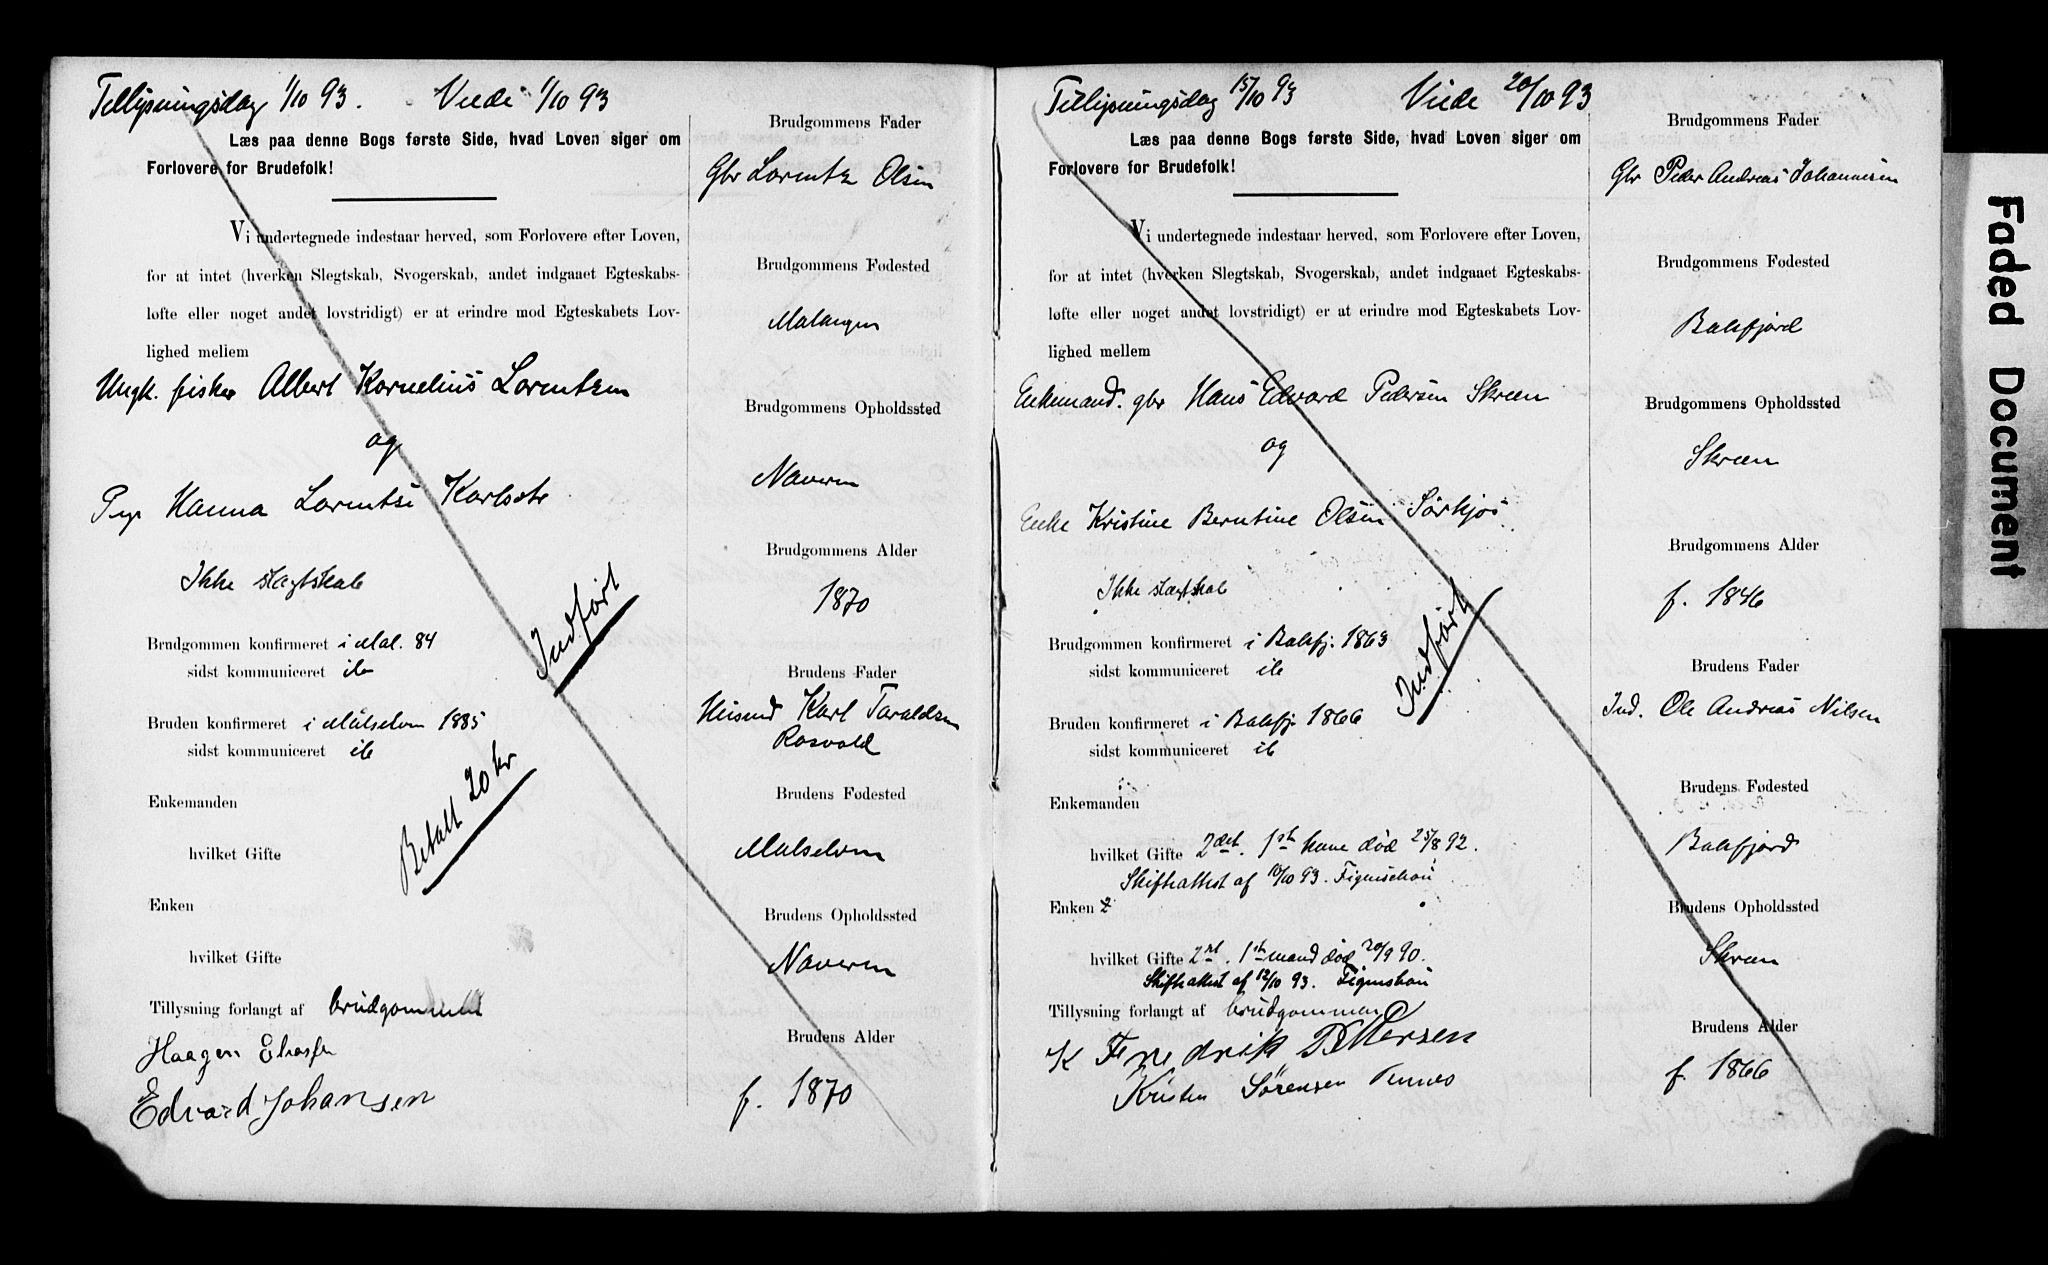 Tillysningsdag 1/10 93. Viede 1/10 93
Læs paa denne Bogs første Side, hvad Loven siger om
Forlovere for Brudefolk!
Vi undertegnede indestaar herved, som Forlovere efter Loven,
for at intet (hverken Slegtskab, Svogerskab, andet indgaaet Egteskabs-
løfte eller noget andet lovstridigt) er at erindre mod Egteskabets Lov-
lighed mellem
Ungk. fisker Albert Kornelius Lorentzen
og
Pige Hanna Lorentse Karlsdtr
Ikke slægtskab
Brudgommen konfirmeret i Mal. 84
sidst kommuniceret
Bruden konfirmeret i Målselven 1885
sidst kommuniceret
Indført
Betalt 20 kr
Enkemanden
hvilket Gifte
Enken
hvilket Gifte
Tillysning forlangt af brudgommen
Haagen
Edvard Johansen
Brudgommens Fader
Gbr Lorentz Olsen
Brudgommens Fødested
Malangen
Brudgommens Opholdssted
Naveren
Brudgommens Alder
1870
Brudens Fader
Husmd Karl Taraldsen
Rosvold
Brudens Fødested
Målselven
Brudens Opholdssted
Naveren
Brudens Alder
f. 1870
Tillysningsdag 15/10 93 Viede 20/10 93
Læs paa denne Bogs første Side, hvad Loven siger om
Forlovere for Brudefolk!
Vi undertegnede indestaar herved, som Forlovere efter Loven,
for at intet (hverken Slegtskab, Svogerskab, andet indgaaet Egteskabs-
løfte eller noget andet lovstridigt) er at erindre mod Egteskabets Lov-
lighed mellem
Enkemand. gbr Hans Edvard Pedersen Skreen
og
Enke Kristine Berntine Olsen Sørkjos
Ikke slægtskab
Brudgommen konfirmeret i Balsfj. 1863
sidst kommuniceret
Bruden konfirmeret i Balsfj. 1866
sidst kommuniceret
Indført
Enkemanden
hvilket Gifte 2det. 1ste kone død 25/8 92.
Skifteattest af 10/10 93.
Enken
hvilket Gifte 2det. 1ste mand død 20/9 90.
Skifteattest af 12/10 93.
Tillysning forlangt af brudgommen
K Fredrik Pettersen
Kristen Sørensen Tennes
Brudgommens Fader
Gbr Peder Andreas Johannesen
Brudgommens Fødested
Balsfjord
Brudgommens Opholdssted
Skreen
Brudgommens Alder
f. 1846
Brudens Fader
Ind. Ole Andreas Nilsen
Brudens Fødested
Balsfjord
Brudens Opholdssted
Skreen
Brudens Alder
f. 1866
Faded Document